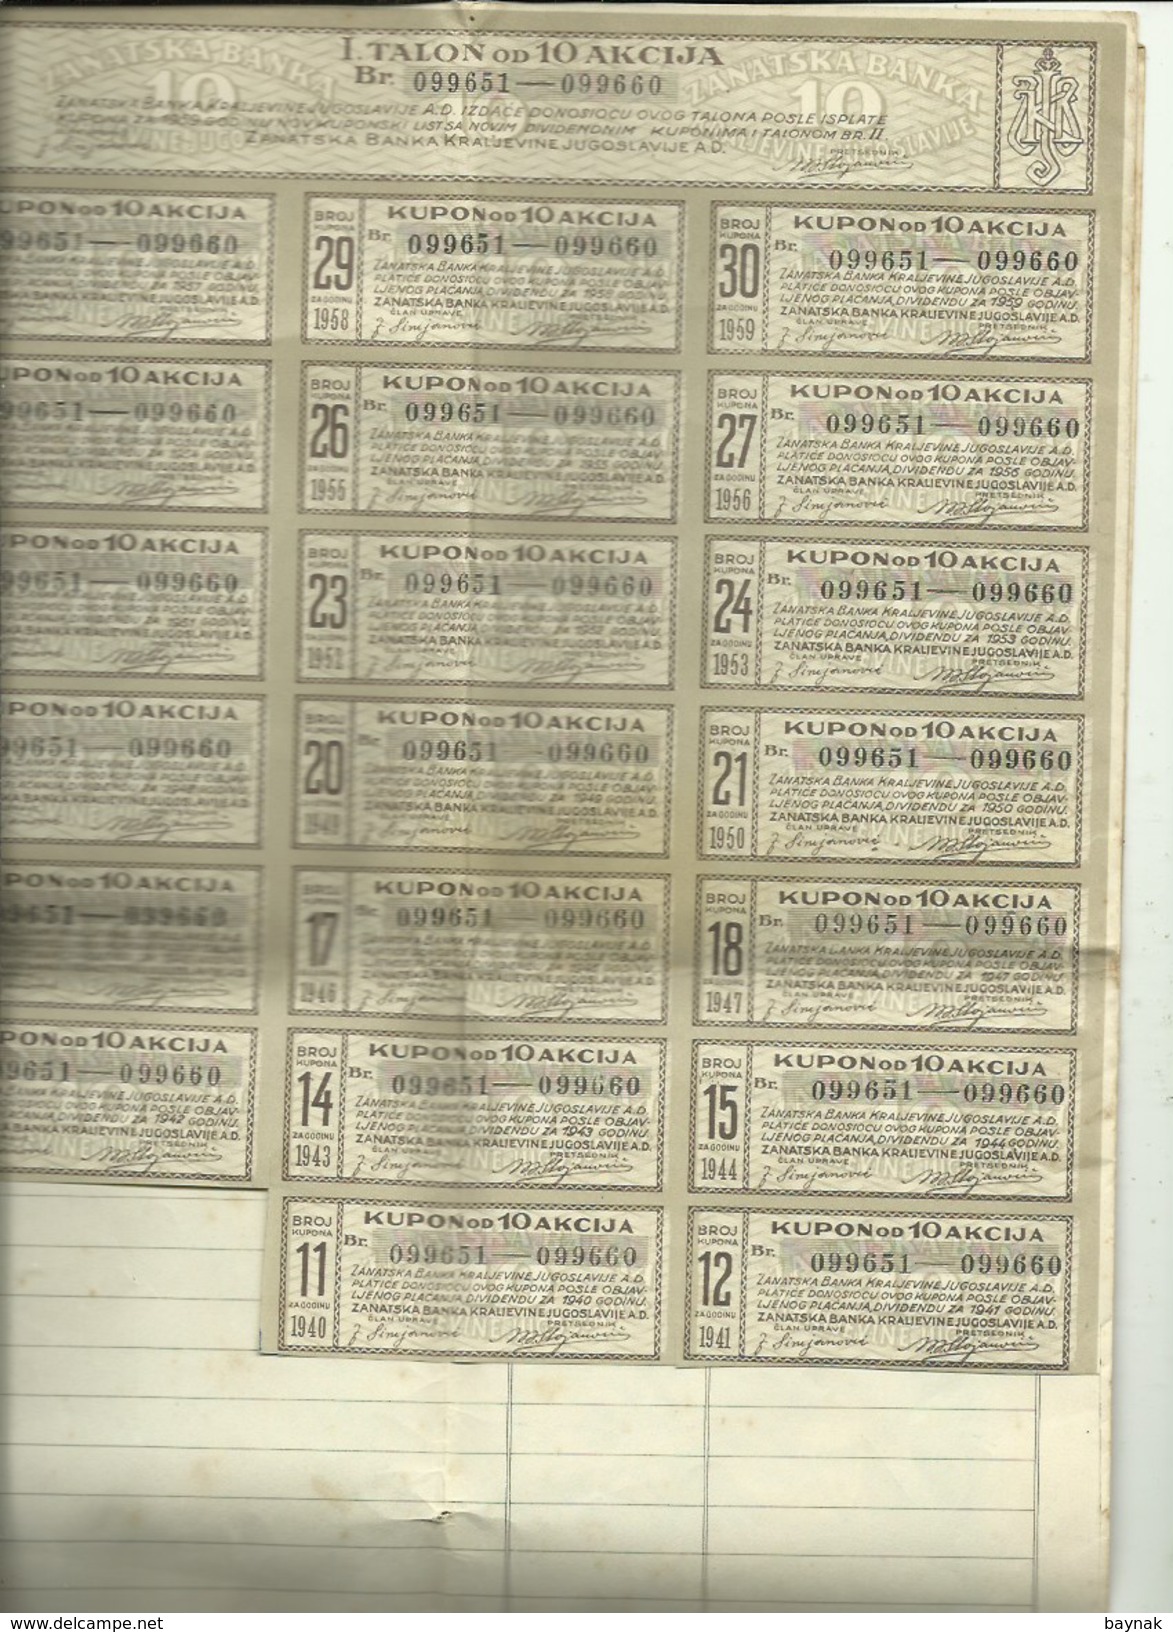 I. TALON OD 10 AKCIJA
Br. 099651—099660
ZANATSKA BANKA
10
ZANATSKA BANKA
10
ZANATSKA BANKA KRALJEVINE JUGOSLAVIJE A.D. IZDAĆE DONOSIOCU OVOG TALONA POSLE ISPLATE
KUPONA ZA 1959 GODINU NOV KUPONSKI LIST SA NOVIM DIVIDENDNIM KUPONIMA I TALONOM BR. II.
ZANATSKA BANKA KRALJEVINE JUGOSLAVIJE A.D.
PRETSEDNIK
KUPON OD 10 AKCIJA
099660
BROJ
KUPONA
29
ZA GODINU
1958
KUPON OD 10 AKCIJA
Br. 099651—099660
ZANATSKA BANKA KRALJEVINE JUGOSLAVIJE A.D.
PLATIĆE DONOSIOCU OVOG KUPONA POSLE OBJAV-
LJENOG PLAĆANJA, DIVIDENDU ZA 1958 GODINU.
ZANATSKA BANKA KRALJEVINE JUGOSLAVIJE A.D.
ČLAN UPRAVE PRETSEDNIK
BROJ
KUPONA
30
ZA GODINU
1959
KUPON OD 10 AKCIJA
Br. 099651—099660
ZANATSKA BANKA KRALJEVINE JUGOSLAVIJE A.D.
PLATIĆE DONOSIOCU OVOG KUPONA POSLE OBJAV-
LJENOG PLAĆANJA, DIVIDENDU ZA 1959 GODINU.
ZANATSKA BANKA KRALJEVINE JUGOSLAVIJE A.D.
ČLAN UPRAVE PRETSEDNIK
KUPON OD 10 AKCIJA
099660
BROJ
KUPONA
26
ZA GODINU
1955
KUPON OD 10 AKCIJA
Br. 099651—099660
ZANATSKA BANKA KRALJEVINE JUGOSLAVIJE A.D.
PLATIĆE DONOSIOCU OVOG KUPONA POSLE OBJAV-
LJENOG PLAĆANJA, DIVIDENDU ZA 1955 GODINU.
ZANATSKA BANKA KRALJEVINE JUGOSLAVIJE A.D.
ČLAN UPRAVE PRETSEDNIK
BROJ
KUPONA
27
ZA GODINU
1956
KUPON OD 10 AKCIJA
Br. 099651—099660
ZANATSKA BANKA KRALJEVINE JUGOSLAVIJE A.D.
PLATIĆE DONOSIOCU OVOG KUPONA POSLE OBJAV-
LJENOG PLAĆANJA, DIVIDENDU ZA 1956 GODINU.
ZANATSKA BANKA KRALJEVINE JUGOSLAVIJE A.D.
ČLAN UPRAVE PRETSEDNIK
KUPON OD 10 AKCIJA
099660
BROJ
KUPONA
23
ZA GODINU
1952
KUPON OD 10 AKCIJA
Br. 099651—099660
ZANATSKA BANKA KRALJEVINE JUGOSLAVIJE A.D.
PLATIĆE DONOSIOCU OVOG KUPONA POSLE OBJAV-
LJENOG PLAĆANJA, DIVIDENDU ZA 1952 GODINU.
ZANATSKA BANKA KRALJEVINE JUGOSLAVIJE A.D.
BROJ
KUPONA
24
ZA GODINU
1953
KUPON OD 10 AKCIJA
Br. 099651—099660
ZANATSKA BANKA KRALJEVINE JUGOSLAVIJE A.D.
PLATIĆE DONOSIOCU OVOG KUPONA POSLE OBJAV-
LJENOG PLAĆANJA, DIVIDENDU ZA 1953 GODINU.
ZANATSKA BANKA KRALJEVINE JUGOSLAVIJE A.D.
ČLAN UPRAVE PRETSEDNIK
KUPON OD 10 AKCIJA
099660
BROJ
KUPONA
20
ZA GODINU
1949
KUPON OD 10 AKCIJA
Br. 099651—099660
ZANATSKA BANKA KRALJEVINE JUGOSLAVIJE A.D.
PLATIĆE DONOSIOCU OVOG KUPONA POSLE OBJAV-
LJENOG PLAĆANJA, DIVIDENDU ZA 1949 GODINU.
ZANATSKA BANKA KRALJEVINE JUGOSLAVIJE A.D.
BROJ
KUPONA
21
ZA GODINU
1950
KUPON OD 10 AKCIJA
Br. 099651—099660
ZANATSKA BANKA KRALJEVINE JUGOSLAVIJE A.D.
PLATIĆE DONOSIOCU OVOG KUPONA POSLE OBJAV-
LJENOG PLAĆANJA, DIVIDENDU ZA 1950 GODINU.
ZANATSKA BANKA KRALJEVINE JUGOSLAVIJE A.D.
ČLAN UPRAVE PRETSEDNIK
KUPON OD 10 AKCIJA
099660
BROJ
17
1946
KUPON OD 10 AKCIJA
Br. 099651—099660
BROJ
KUPONA
18
ZA GODINU
1947
KUPON OD 10 AKCIJA
Br. 099651—099660
ZANATSKA BANKA KRALJEVINE JUGOSLAVIJE A.D.
PLATIĆE DONOSIOCU OVOG KUPONA POSLE OBJAV-
LJENOG PLAĆANJA, DIVIDENDU ZA 1947 GODINU.
ZANATSKA BANKA KRALJEVINE JUGOSLAVIJE A.D.
ČLAN UPRAVE PRETSEDNIK
KUPON OD 10 AKCIJA
099660
DIVIDENDU ZA 1942 GODINU.
BANKA KRALJEVINE JUGOSLAVIJE A.D.
PRETSEDNIK
BROJ
KUPONA
14
ZA GODINU
1943
KUPON OD 10 AKCIJA
Br. 099651—099660
ZANATSKA BANKA KRALJEVINE JUGOSLAVIJE A.D.
PLATIĆE DONOSIOCU OVOG KUPONA POSLE OBJAV-
LJENOG PLAĆANJA, DIVIDENDU ZA 1943 GODINU.
ZANATSKA BANKA KRALJEVINE JUGOSLAVIJE A.D.
ČLAN UPRAVE PRETSEDNIK
BROJ
KUPONA
15
ZA GODINU
1944
KUPON OD 10 AKCIJA
Br. 099651—099660
ZANATSKA BANKA KRALJEVINE JUGOSLAVIJE A.D.
PLATIĆE DONOSIOCU OVOG KUPONA POSLE OBJAV-
LJENOG PLAĆANJA, DIVIDENDU ZA 1944 GODINU.
ZANATSKA BANKA KRALJEVINE JUGOSLAVIJE A.D.
ČLAN UPRAVE PRETSEDNIK
BROJ
KUPONA
11
ZA GODINU
1940
KUPON OD 10 AKCIJA
Br. 099651—099660
ZANATSKA BANKA KRALJEVINE JUGOSLAVIJE A.D.
PLATIĆE DONOSIOCU OVOG KUPONA POSLE OBJAV-
LJENOG PLAĆANJA, DIVIDENDU ZA 1940 GODINU.
ZANATSKA BANKA KRALJEVINE JUGOSLAVIJE A.D.
ČLAN UPRAVE PRETSEDNIK
BROJ
KUPONA
12
ZA GODINU
1941
KUPON OD 10 AKCIJA
Br. 099651—099660
ZANATSKA BANKA KRALJEVINE JUGOSLAVIJE A.D.
PLATIĆE DONOSIOCU OVOG KUPONA POSLE OBJAV-
LJENOG PLAĆANJA, DIVIDENDU ZA 1941 GODINU.
ZANATSKA BANKA KRALJEVINE JUGOSLAVIJE A.D.
ČLAN UPRAVE PRETSEDNIK
www.delcampe.net
baynak